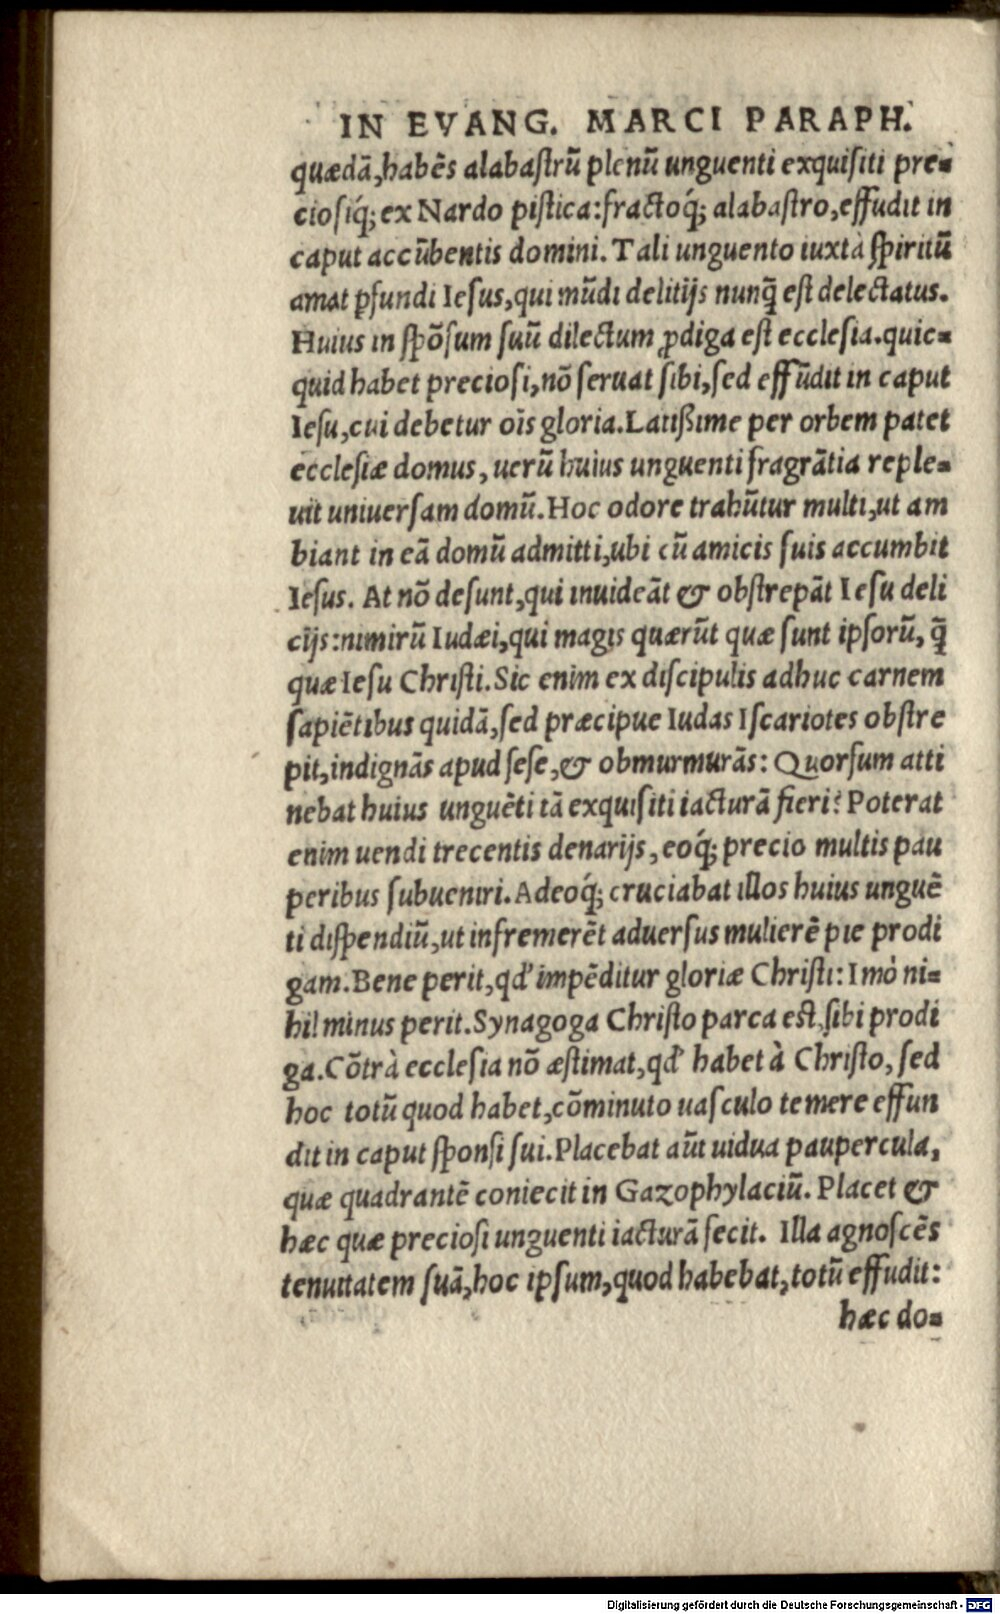 IN EVANG. MARCI PARAPH.
quædã,habẽs alabastrũ plenũ unguenti exquisiti pre-
ciosiq́; ex Nardo pistica:fractoq́; alabastro,effudit in
caput accũbentis domini. Tali unguento iuxtà spiritũ
amat ꝑfundi Iesus,qui mũdi delitijs nunq̃ est delectatus.
Huius in spõsum suũ dilectum ꝓdiga est ecclesia.quic-
quid habet preciosi,nõ seruat sibi,sed effũdit in caput
Iesu,cui debetur oĩs gloria.Latißime per orbem patet
ecclesiæ domus, uerũ huius unguenti fragrãtia reple-
uit uniuersam domũ.Hoc odore trahũtur multi,ut am
biant in eã domũ admitti,ubi cũ amicis suis accumbit
Iesus. At nõ desunt,qui inuideãt & obstrepãt Iesu deli
cijs:nimirũ Iudæi,qui magis quærũt quæ sunt ipsorũ, q̃
quæ Iesu Christi.Sic enim ex discipulis adhuc carnem
sapiẽtibus quidã,sed præcipue Iudas Iscariotes obstre
pit,indignãs apud sese,& obmurmurãs: Quorsum atti
nebat huius unguẽti tã exquisiti iacturã fieri? Poterat
enim uendi trecentis denarijs, eoq́; precio multis pau
peribus subueniri. Adeoq́; cruciabat illos huius unguẽ
ti dispendiũ,ut infremerẽt aduersus mulierẽ pie prodi
gam.Bene perit,qd' impẽditur gloriæ Christi: Imò ni-
hil minus perit.Synagoga Christo parca est,sibi prodi
ga.Cõtrà ecclesia nõ æstimat,qd' habet à Christo, sed
hoc totũ quod habet,cõminuto uasculo temere effun
dit in caput sponsi sui.Placebat aũt uidua paupercula,
quæ quadrantẽ coniecit in Gazophylaciũ. Placet &
hæc quæ preciosi unguenti iacturã fecit. Illa agnoscẽs
tenuitatem suã,hoc ipsum,quod habebat,totũ effudit:
hæc do-
Digitalisierung gefördert durch die Deutsche Forschungsgemeinschaft - DFG